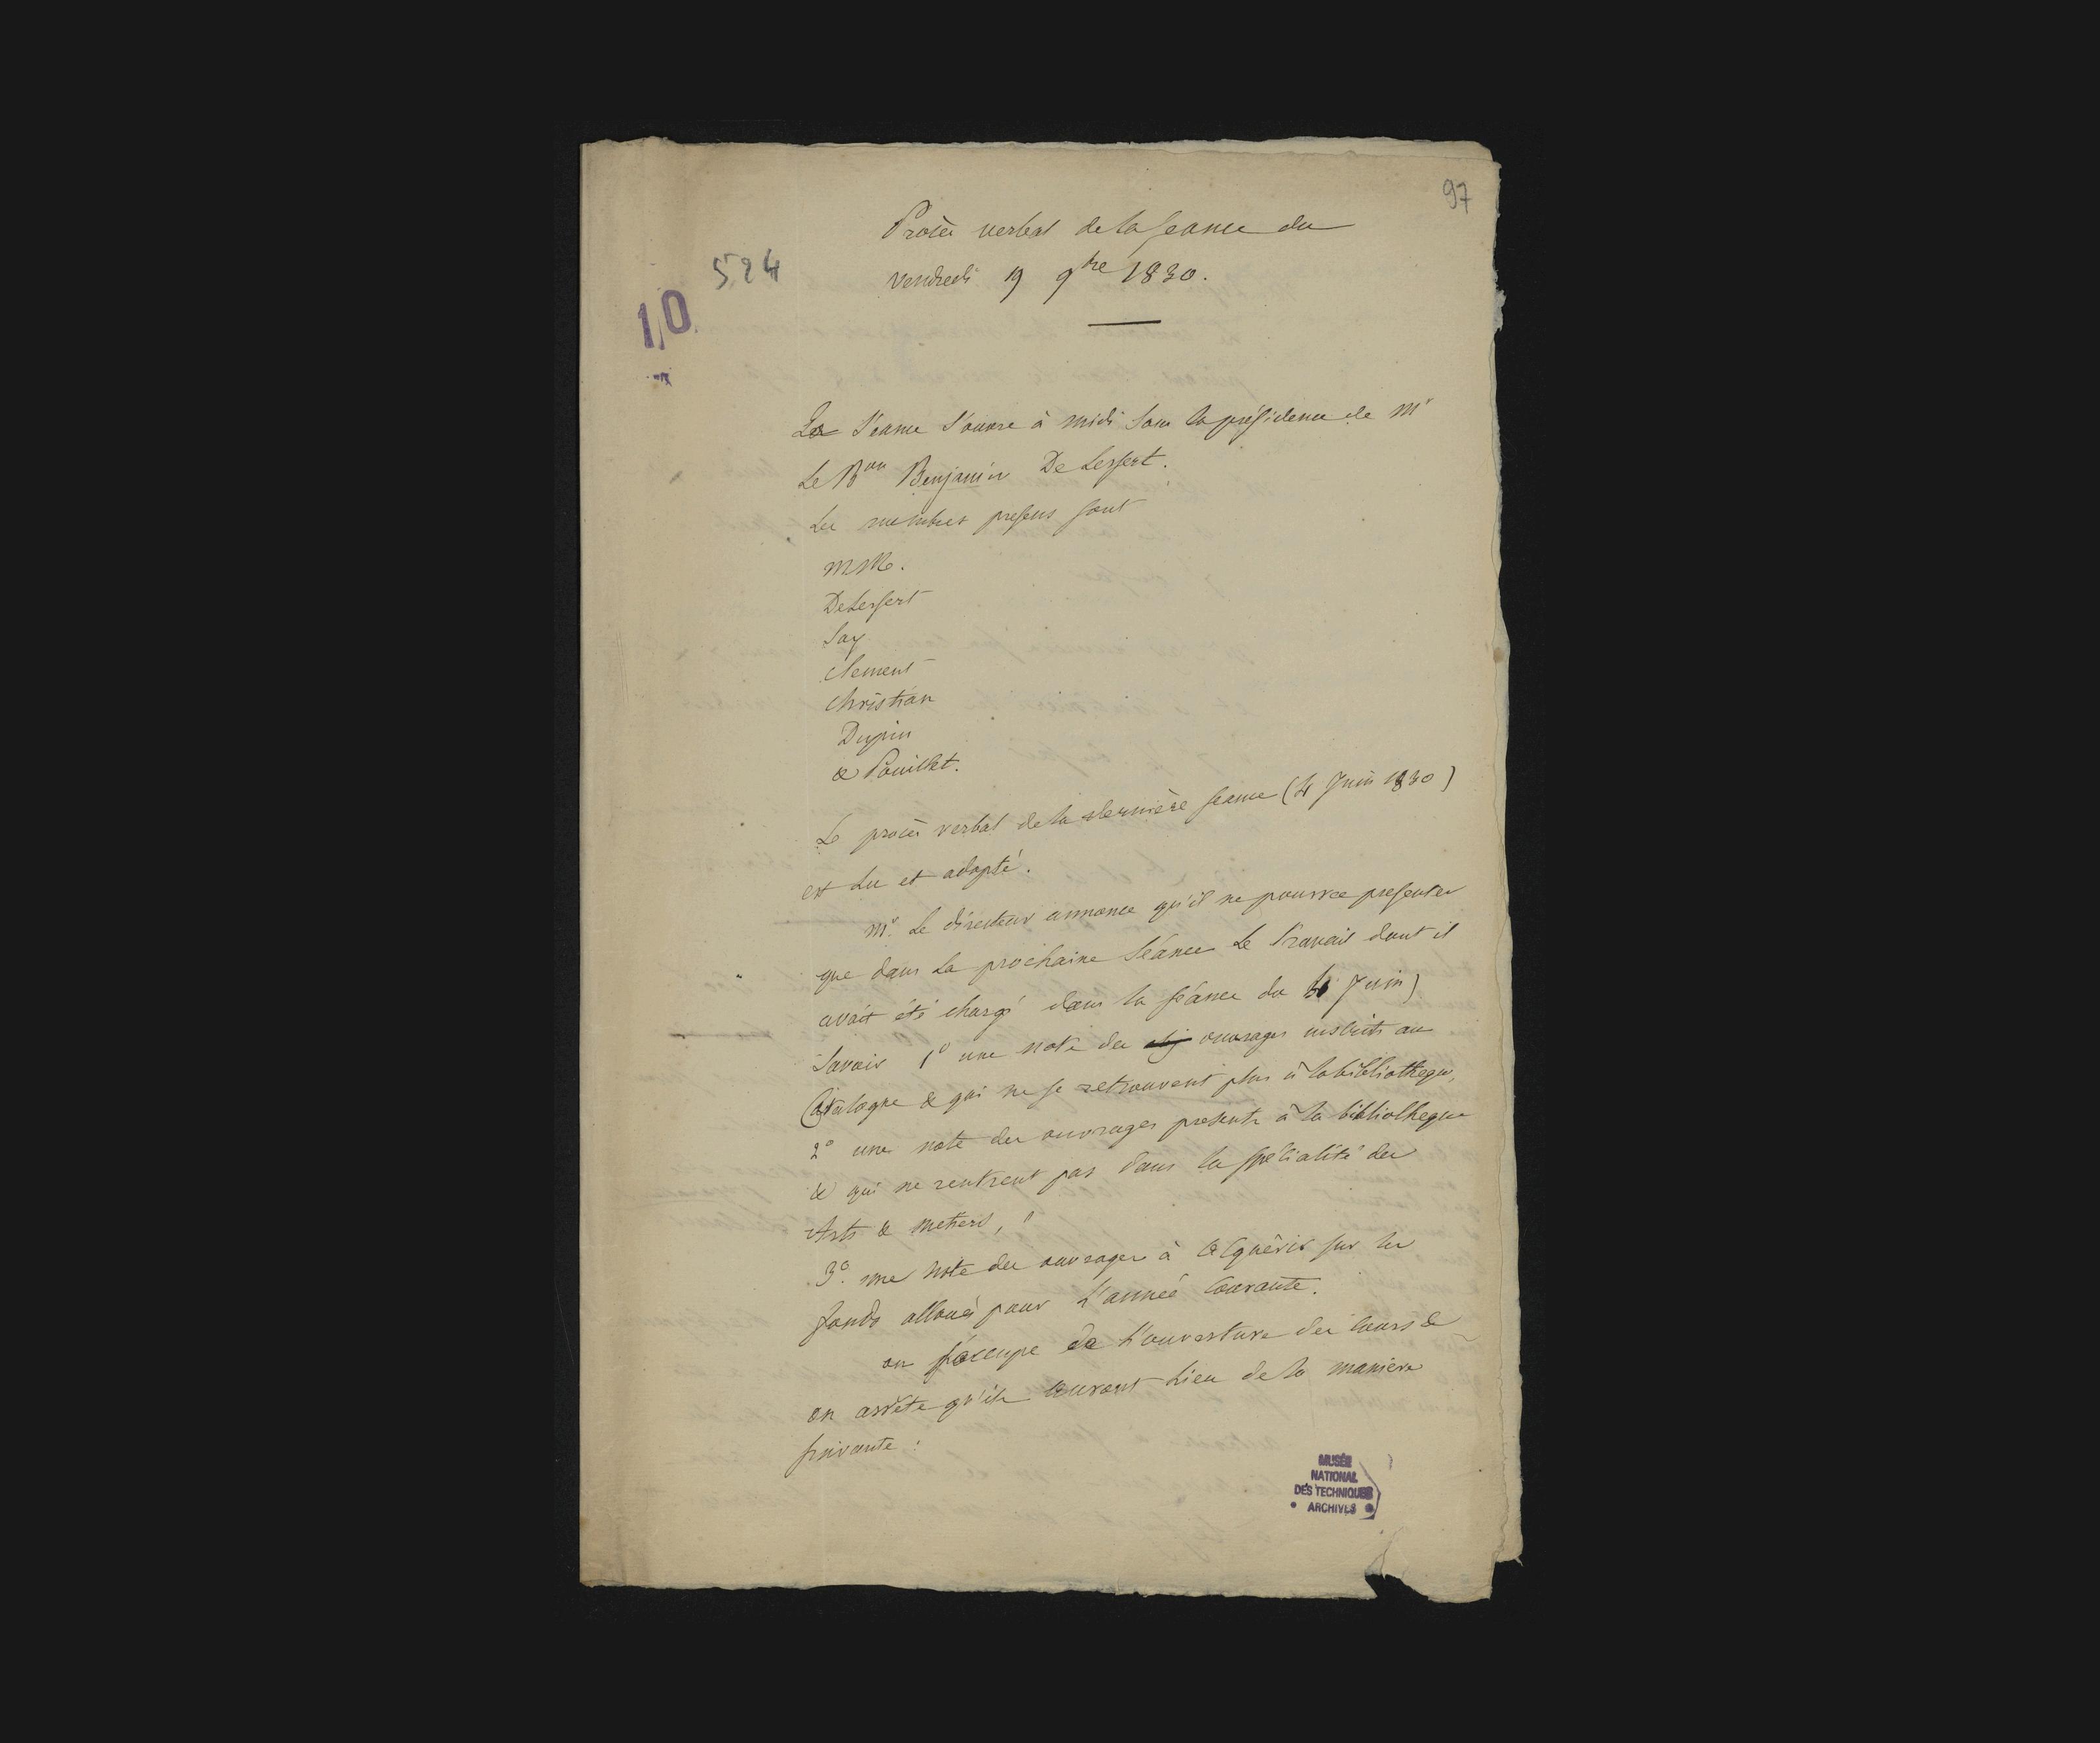 97
Procès verbal de la séance du
524
vendredi 19 9bre 1830.
10
La séance s'ouvre à midi sous la présidence de Mr
Le Bon Benjamin De Lessert.
Les membres presens sont
MM.
DeLessert
Say
Clement
Christian
Dupin
& Pouillet.
Le procès verbal de la dernière seance (4 Juin 1830)
est lu et adopté.
Mr. Le directeur annonce qu'il ne pourra presenter
que dans La prochaine Séance Le Travail dont il
avait été chargé dans la séance du 4 Juin)
Savoir 1o une note des ouvrages inscrits au
Catalogue & qui ne se retrouvent plus à la bibliotheque,
2o une note des ouvrages presents à la bibliotheque
& qui ne rentrent pas dans la spécialité des
Arts & metiers,
3o. une Note des ouvrages à acquérir sur les
fonds alloués pour L'année Courante.
on s'occupe de L'ouverture des cours &
on arrête qu'ils auront Lieu de la maniere
suivante :
MUSÉE
NATIONAL
DES TECHNIQUES
ARCHIVES